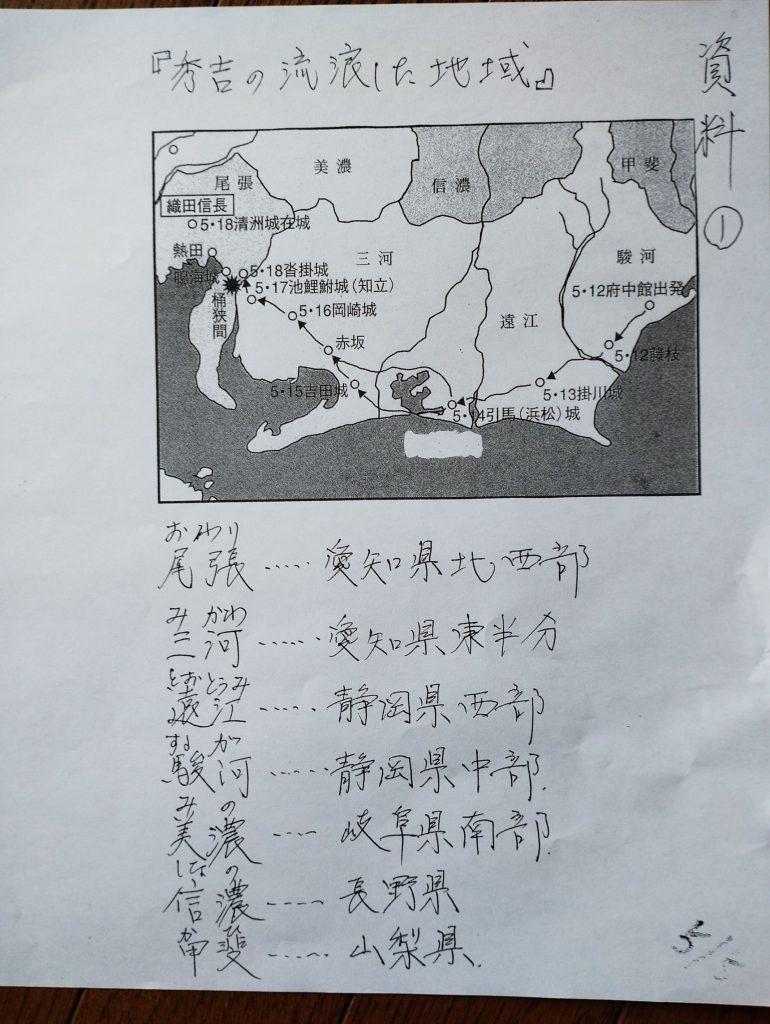 資料①
『秀吉の流浪した地域』
尾張
美濃
信濃
甲斐
織田信長
5・18清洲城在城
熱田
鳴海城
5・18沓掛城
桶狭間
5・17池鯉鮒城(知立)
三河
駿河
5・12府中館出発
5・16岡崎城
遠江
赤坂
5・12藤枝
5・15吉田城
5・13掛川城
5・14引馬(浜松)城
おわり
尾張 ‥‥‥ 愛知県北西部
みかわ
三河 ‥‥‥ 愛知県東半分
とおとうみ
遠江 ‥‥‥ 静岡県西部
するが
駿河 ‥‥‥ 静岡県中部
みの
美濃 ‥‥‥ 岐阜県南部
しなの
信濃 ‥‥‥ 長野県
かひ
甲斐 ‥‥‥ 山梨県